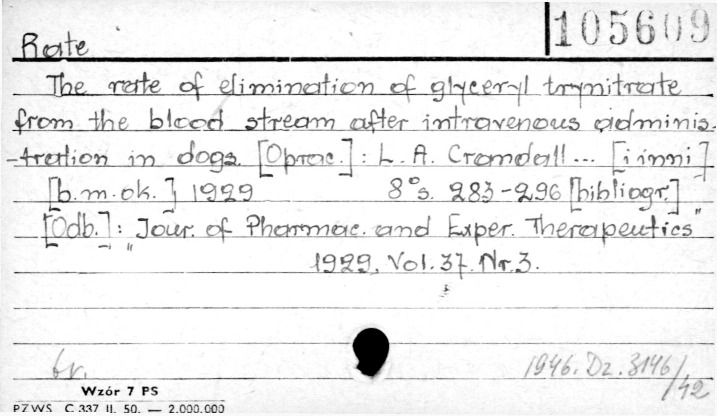 105609
Rate
The rate of elimination of glyceryl trynitrate
from the blood stream after intravenous adminis-
-tration in dogs. [Oprac.]: L. A. Crandall ... [i inni]
[b.m.ok.] 1929 8° s. 283-296 [bibliogr.]
[Odb.]: "Jour. of Pharmac. and Exper. Therapeutics"
1929. Vol. 37. Nr. 3.
br.
1946. Dz. 3146/42
Wzór 7 PS
PZWS C 337 II. 50. — 2.000.000